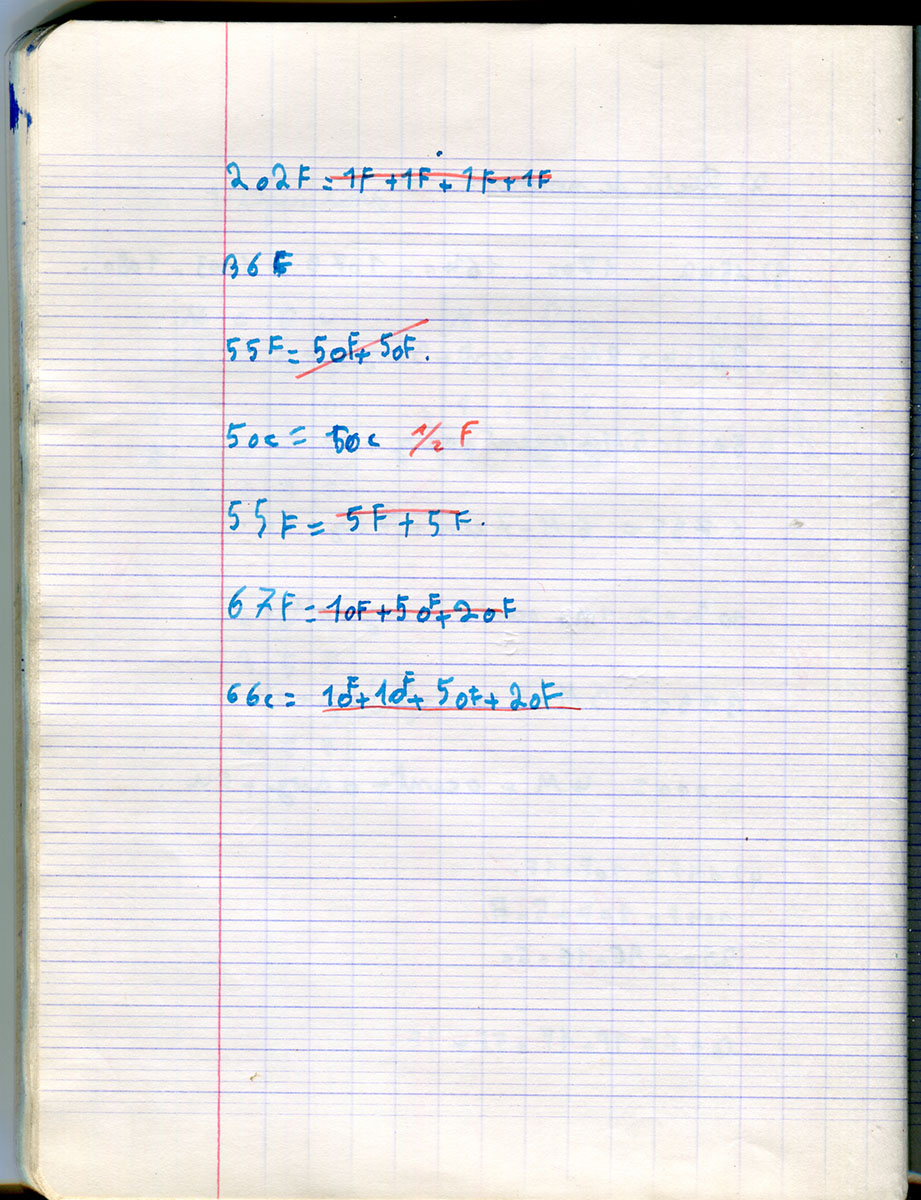 202F = 1F + 1F + 1F + 1F
36F
55F = 50F + 50F.
50c = 50c 1/2 F
55F = 5F + 5F.
67F = 10F + 50F + 20F
66c = 10F + 10F + 50F + 20F